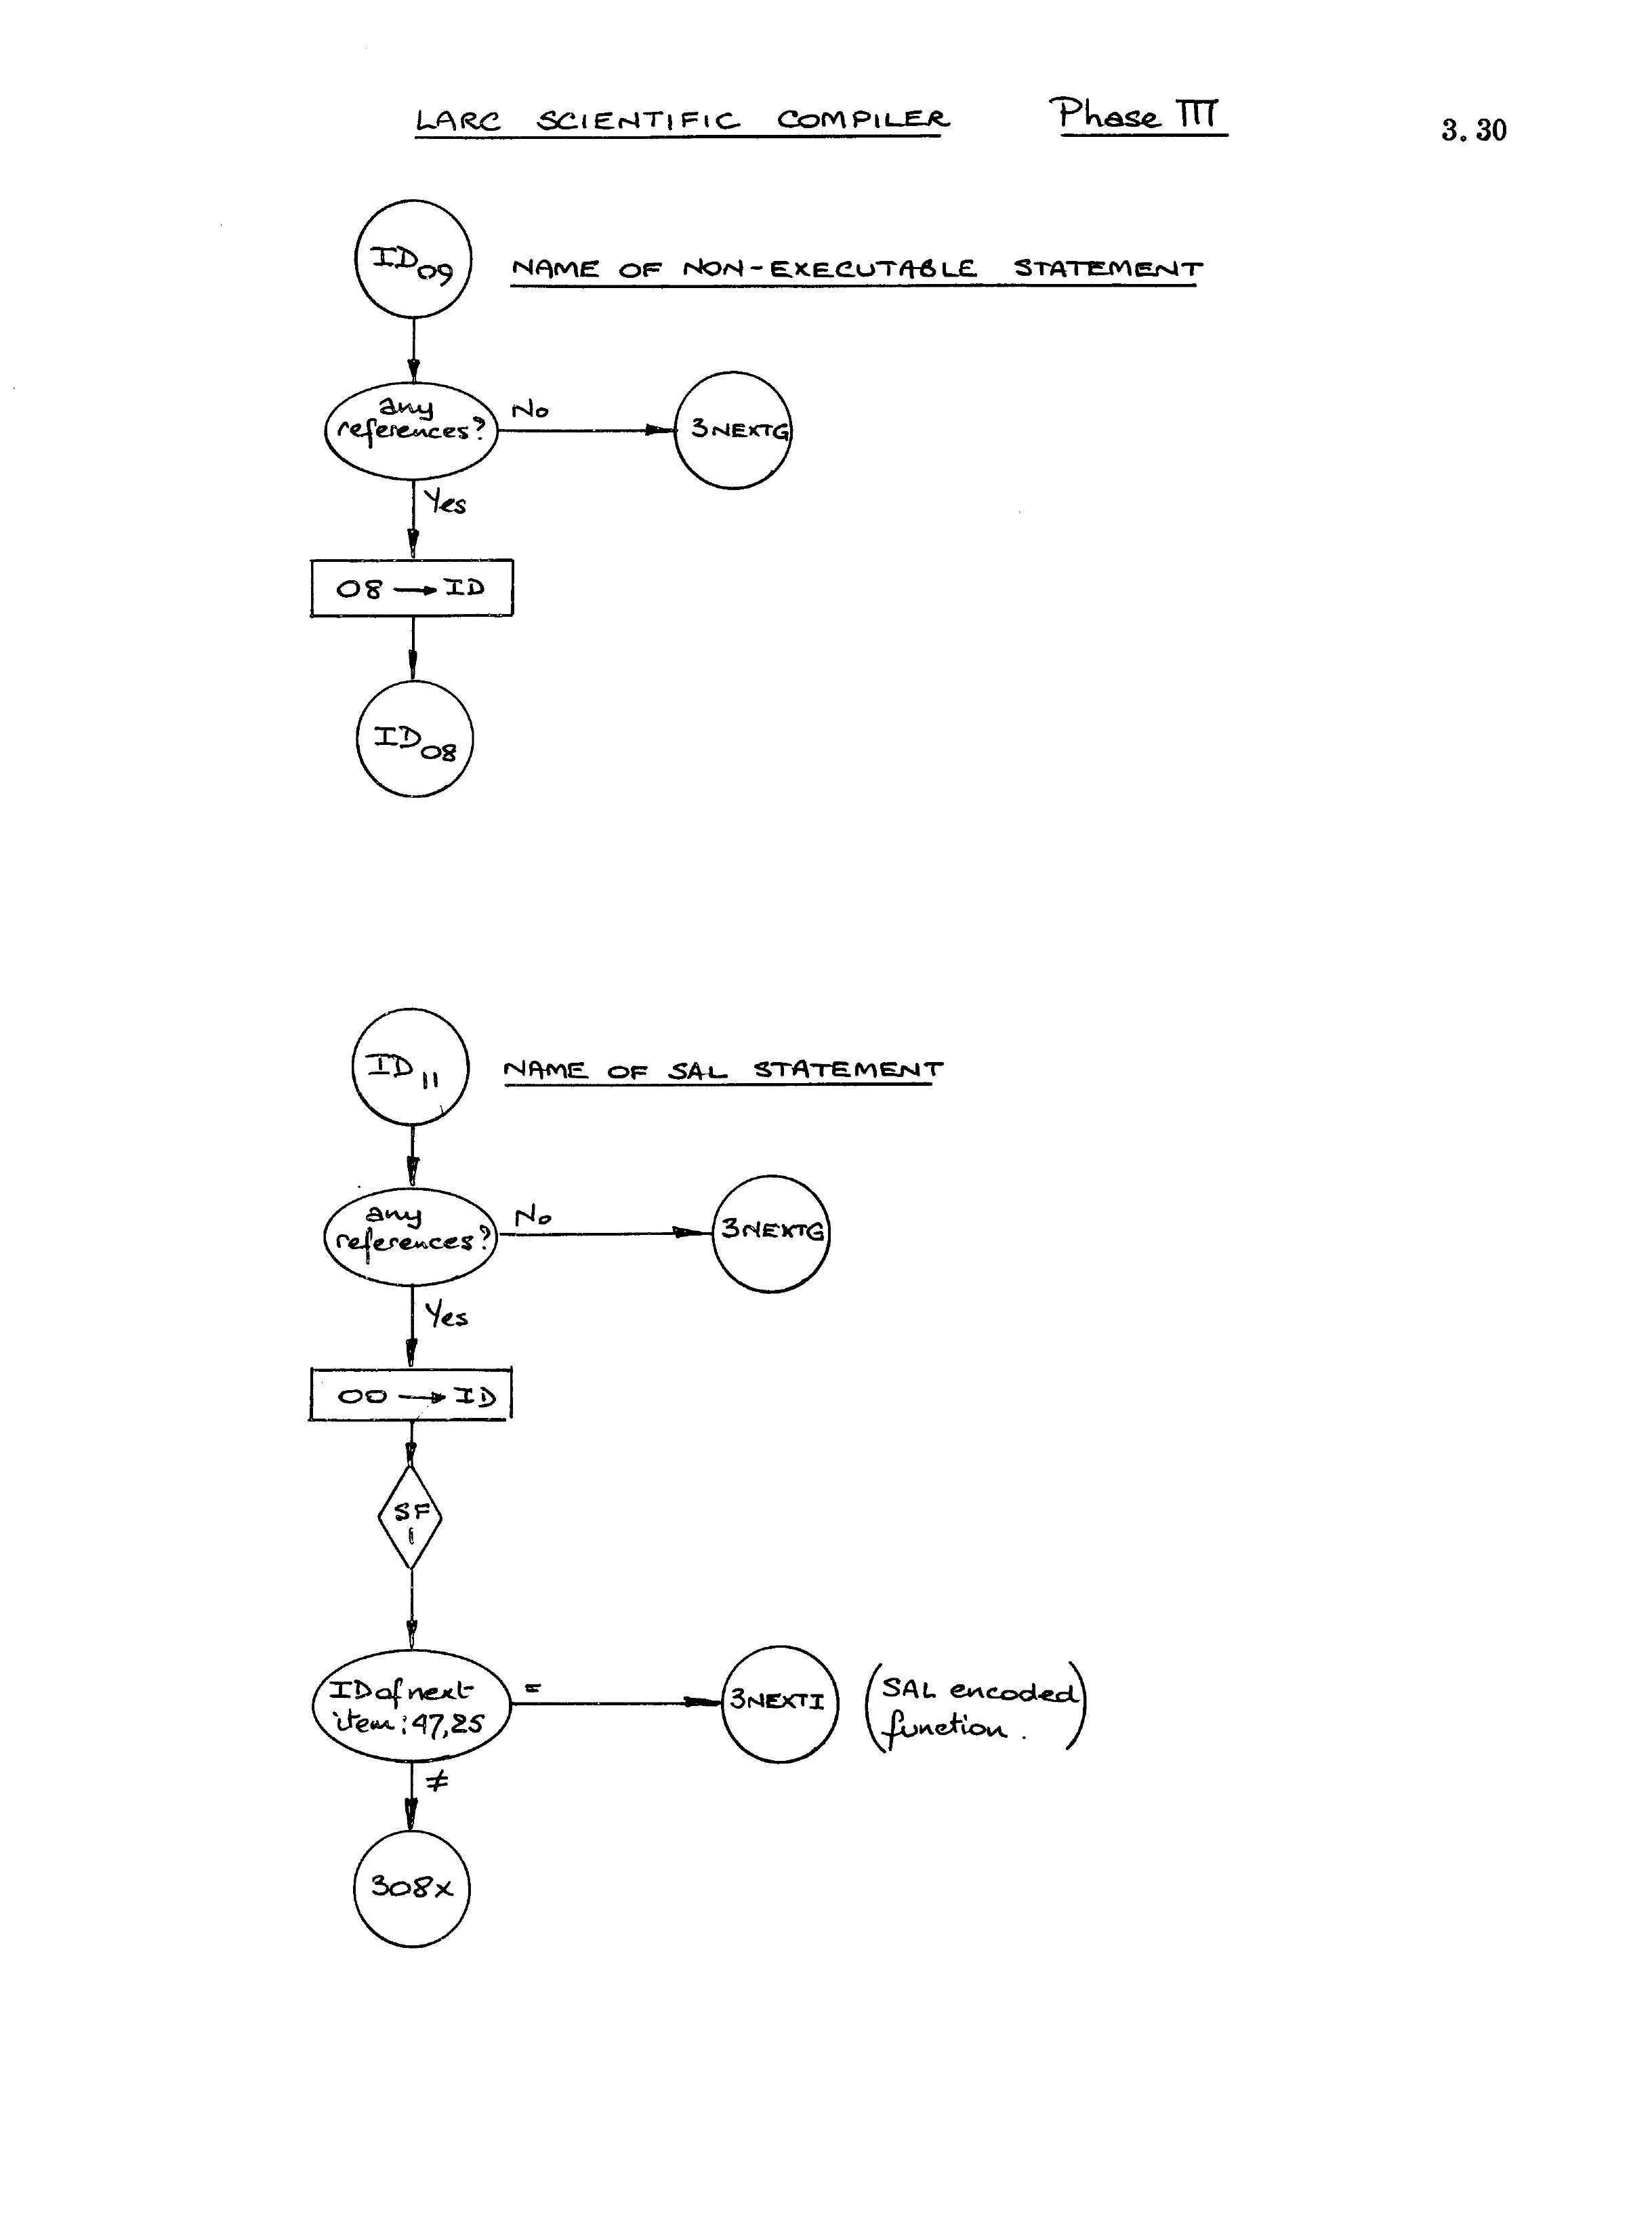 LARC SCIENTIFIC COMPILER Phase III 3.30
ID09 NAME OF NON-EXECUTABLE STATEMENT
any
references?
No
3NEXTG
Yes
08 → ID
ID08
ID11 NAME OF SAL STATEMENT
any
references?
No
3NEXTG
Yes
00 → ID
SF
1
ID of next
item: 47,25
=
3NEXTI
(SAL encoded
function.)
≠
308x